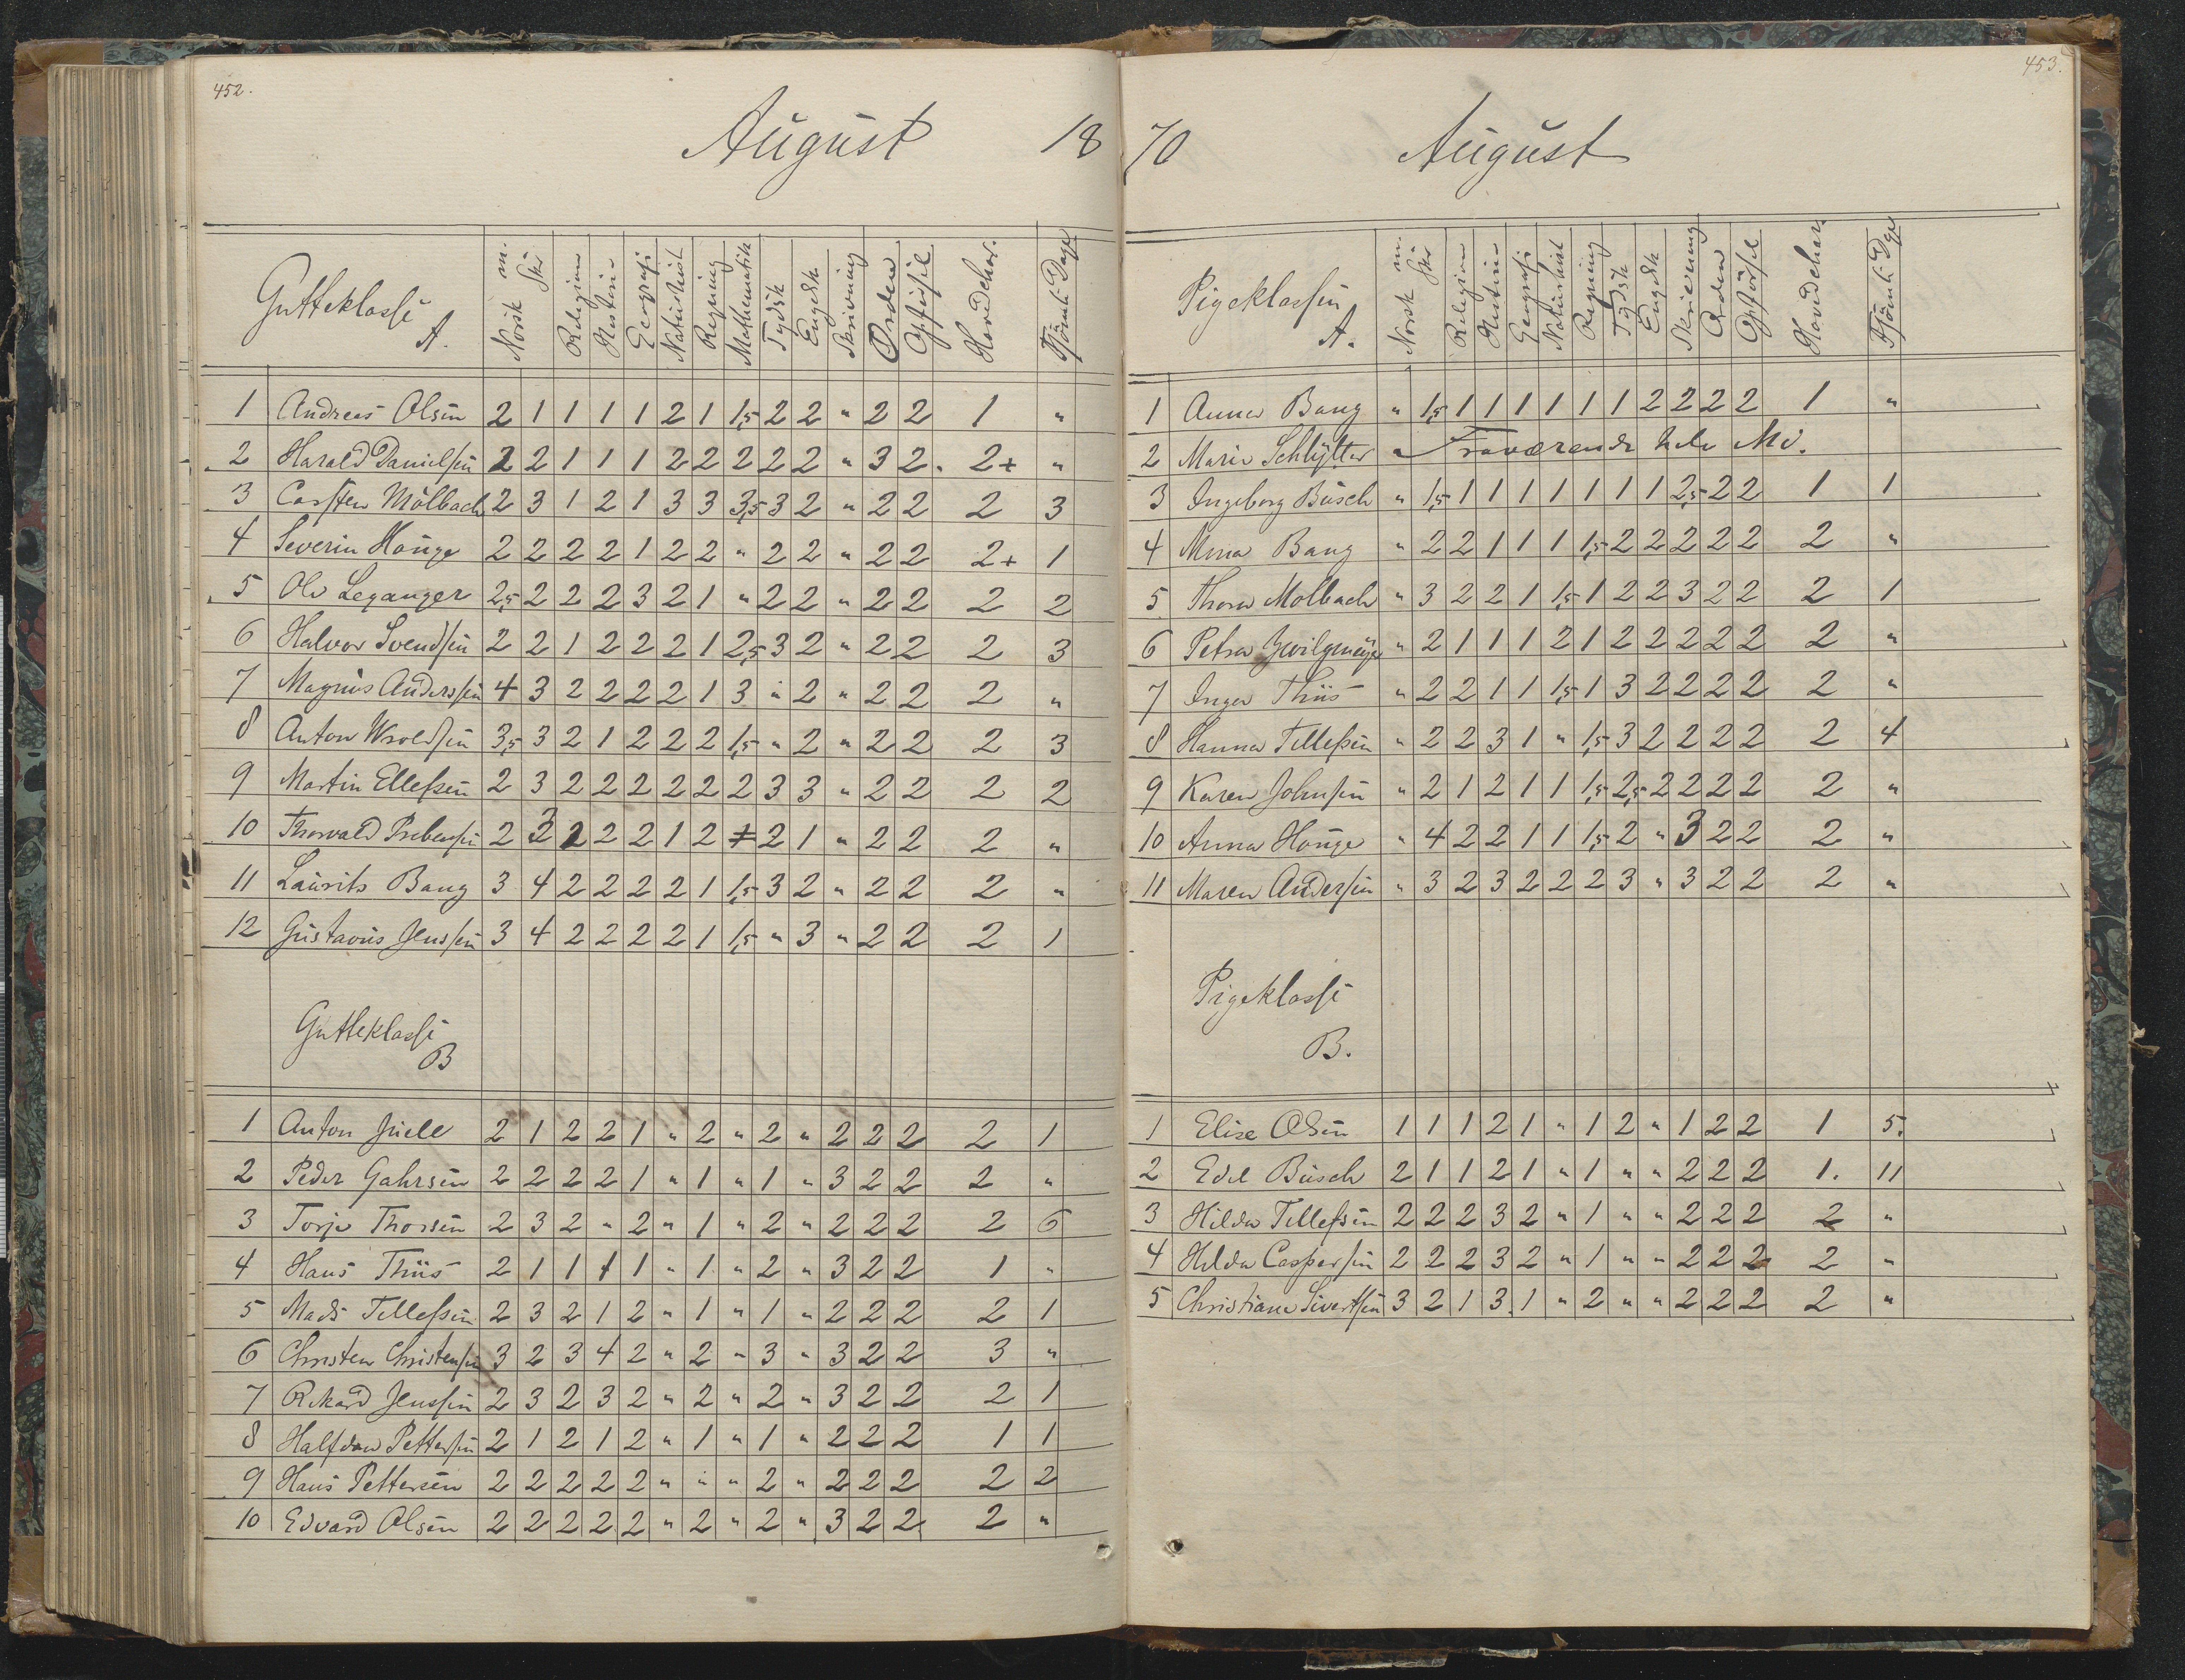 452.
August 18
Gutteklasse A.
Norsk m. Skr Religion Historie Geografi Naturhist Regning Mathematik Tydsk Engelsk Skrivning Orden Opførsel Hovedchar. Forsömte Dage
1 Andreas Olsen 2 1 1 1 1 2 1 1,5 2 2 " 2 2 1 "
2 Harald Danielsen 2 2 1 1 1 2 2 2 2 2 " 3 2 2+ "
3 Carsten Mölbach 2 3 1 2 1 3 3 3,5 3 2 " 2 2 2 3
4 Severin Houge 2 2 2 2 1 2 2 " 2 2 " 2 2 2+ 1
5 Ole Leganger 2,5 2 2 2 3 2 1 " 2 2 " 2 2 2 2
6 Halvor Svendsen 2 2 1 2 2 2 1 2,5 3 2 " 2 2 2 3
7 Magnus Anderssen 4 3 2 2 2 2 1 3 " 2 " 2 2 2 "
8 Anton Wroldsen 3,5 3 2 1 2 2 2 1,5 " 2 " 2 2 2 3
9 Martin Ellefsen 2 3 2 2 2 2 2 2 3 3 " 2 2 2 2
10 Thorvald Prebensen 2 3 2 2 2 1 2 2 1 " 2 2 2 "
11 Laurits Bang 3 4 2 2 2 2 1 1,5 3 2 " 2 2 2 "
12 Gustavus Jenssen 3 4 2 2 2 2 1 1,5 " 3 " 2 2 2 1
Gutteklasse
B
1 Anton Juell 2 1 2 2 1 " 2 " 2 " 2 2 2 2 1
2 Peder Gahrsen 2 2 2 2 1 " 1 " 1 " 3 2 2 2 "
3 Torje Thorsen 2 3 2 " 2 " 1 " 2 " 2 2 2 2 6
4 Hans Thiis 2 1 1 1 1 " 1 " 2 " 3 2 2 1 "
5 Mads Tellefsen 2 3 2 1 2 " 1 " 1 " 2 2 2 2 1
6 Christen Christensen 3 2 3 4 2 " 2 " 3 " 3 2 2 3 "
7 Rikard Jenssen 2 3 2 3 2 " 2 " 2 " 3 2 2 2 1
8 Halfdan Pettersen 2 1 2 1 2 " 1 " 1 " 2 2 2 1 1
9 Hans Pettersen 2 2 2 2 2 " " " 2 " 2 2 2 2 2
10 Edvard Olsen 2 2 2 2 2 " 2 " 2 " 3 2 2 2 "
453.
70 August
Pigeklassen A.
Norsk m. Skr Religion Historie Geografi Naturhist Regning Tydsk Engelsk Skrivning Orden Opførsel Hovedchar. Forsömte Dage
1 Anna Bang " 1,5 1 1 1 1 1 1 2 2 2 2 1 "
2 Marie Schlytter " Fraværende hele Md.
3 Ingeborg Busch " 1,5 1 1 1 1 1 1 1 2,5 2 2 1 1
4 Mina Bang " 2 2 1 1 1 1,5 2 2 2 2 2 2 "
5 Thora Mølbach " 3 2 2 1 1,5 1 2 2 3 2 2 2 1
6 Petra Zwilgmeyer " 2 1 1 1 2 1 2 2 2 2 2 2 "
7 Inger Thiis " 2 2 1 1 1,5 1 3 2 2 2 2 2 "
8 Hanna Tellefsen " 2 2 3 1 " 1,5 3 2 2 2 2 2 4
9 Karen Johnsen " 2 1 2 1 1 1,5 2,5 2 2 2 2 2 "
10 Anna Houge " 4 2 2 1 1 1,5 2 " 3 2 2 2 "
11 Maren Andersen " 3 2 3 2 2 2 3 " 3 2 2 2 "
Pigeklasse
B.
1 Elise Olsen 1 1 1 2 1 " 1 2 " 1 2 2 1 5.
2 Edel Busch 2 1 1 2 1 " 1 " " 2 2 2 1. 11
3 Hilda Tellefsen 2 2 2 3 2 " 1 " " 2 2 2 2 "
4 Hilda Caspersen 2 2 2 3 2 " 1 " " 2 2 2 2 "
5 Christiane Sivertsen 3 2 1 3 1 " 2 " " 2 2 2 2 "